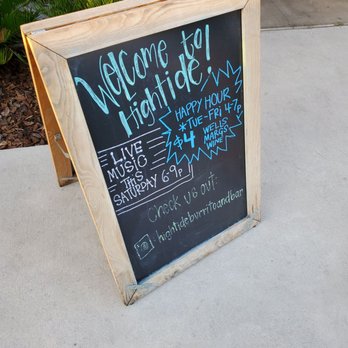 Welcome to
Hightide!
HAPPY HOUR
*TUE-FRI 4-7p
$4 WELLS
MARGS
WINE
LIVE
MUSIC
THIS
SATURDAY 6-9p
Check us out:
hightideburritoandbar